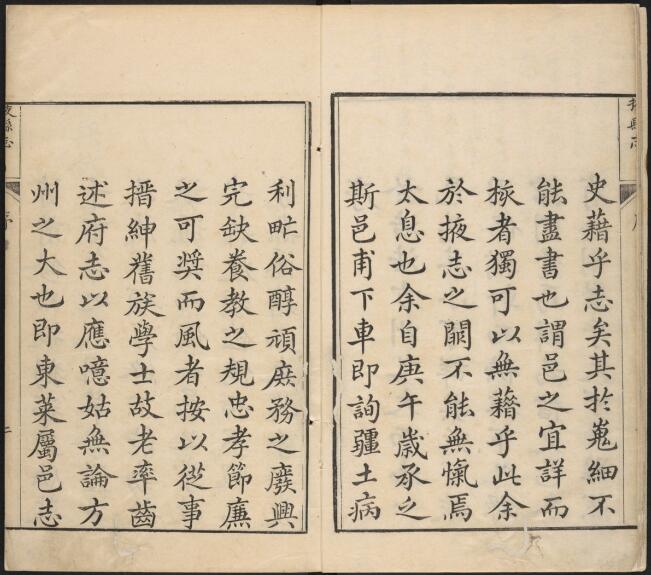 史藉乎志矣其扵嵬細不
能盡書也謂邑之宜詳而
核者獨可以無藉乎此余
於掖志之闕不能無愾焉
太息也余自庚午歲承之
斯邑甫下車即詢疆土病
利甿俗醇頑庶務之廢興
完缺養教之規忠孝節廉
之可奨而風者按以從事
搢紳舊族學士故老率齒
述府志以應噫姑無論方
州之大也即東萊屬邑志
掖縣志
序
二